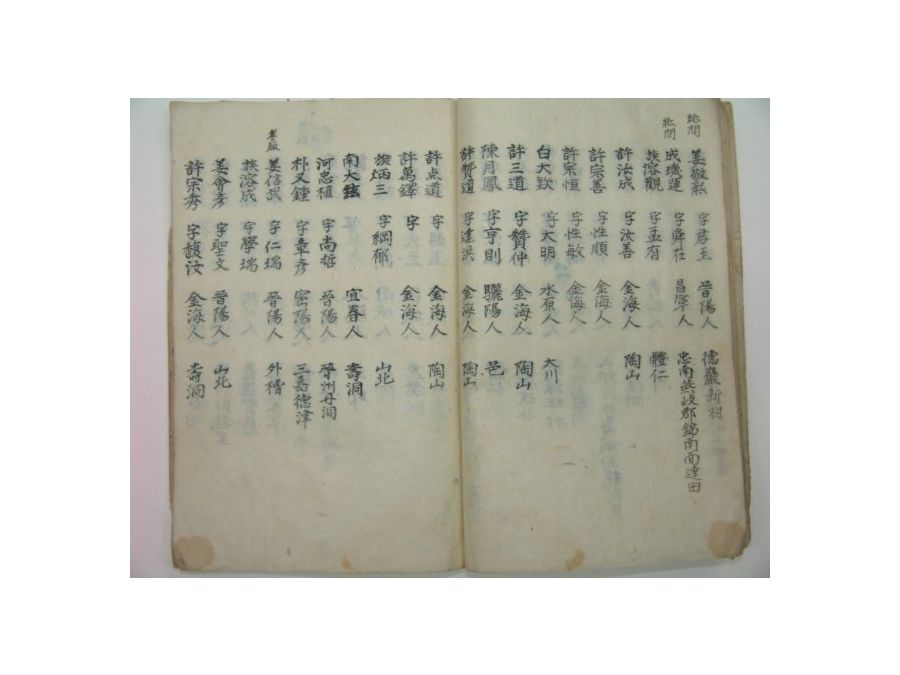 姜敬熙 字君玉 晉陽人 德巖新村
慰問 成璣運 字舜在 昌寧人 忠南燕岐郡錦南面達田
慰問 族溶觀 字孟有 體仁
許汝成 字汝善 金海人 陶山
許宗善 字性順 金海人
許宗恒 字性敏 金海人
白大欽 字大明 水原人 大川
許三道 字贊仲 金海人 陶山
陳月鳳 字亨則 驪陽人 邑
許贊道 字達洪 金海人 陶山
許点道 字 金海人 陶山
許萬鐸 字 金海人
族炳三 字綱郁 山北
南大鉉 宜春人 壽洞
河忠植 字尚哲 晉陽人 晉州丹洞
朴又鍾 字章彦 密陽人 三嘉德津
姜信武 字仁瑞 晉陽人 外稽
族溶成 字學瑞
姜會彦 字聖文 晉陽人 山北
許宗秀 字馥汝 金海人 壽洞